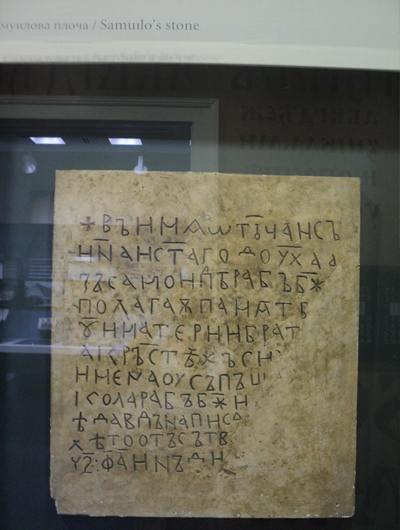 муилова плоча / Samuilo's stone
☩ ВЪ ИМѦ ѠТЬЧА И С
И НА И СТ҃АГО ДОУХА А
ЗЪ САМОИ РАБЪ БЖ
ПОЛАГАѬ ПАМѦТЬ
И МАТЕРИ И БРАТ
КРЪСТѢХЪ СИ
ИМЕНА ОУСЪПЪШ
ІСОЛА РАБЪ БЖИ
Ѣ ДАВДЪ НАПИСА
ѢТО ОТЪ СЪТВ
ИНЪДИ